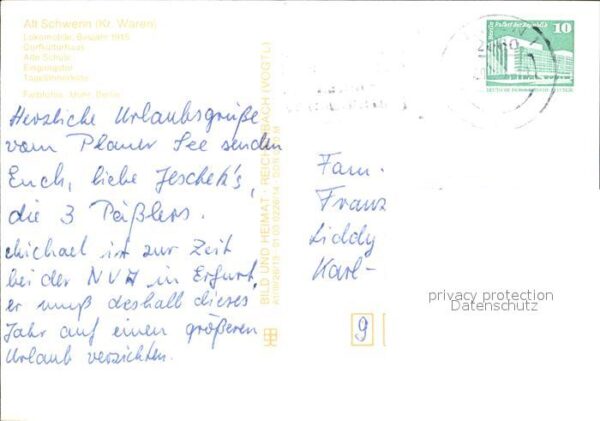 Alt Schwerin (Kr. Waren)
Lokomobile, Baujahr 1915
Dorfkulturhaus
Alte Schule
Eingangstor
Tagelöhnerkate
Farbfotos:
Berlin
Herzliche Urlaubsgrüße
vom Plauer See senden
Euch, liebe Jeschek's,
die 3 Päßlers.
Michael ist zur Zeit
bei der NVA in Erfurt,
er muß deshalb dieses
Jahr auf einen größeren
Urlaub verzichten.
BILD UND HEIMAT · REICHENBACH (VOGTL)
10
Fam.
Franz
Liddy
Karl-
9
privacy protection
Datenschutz